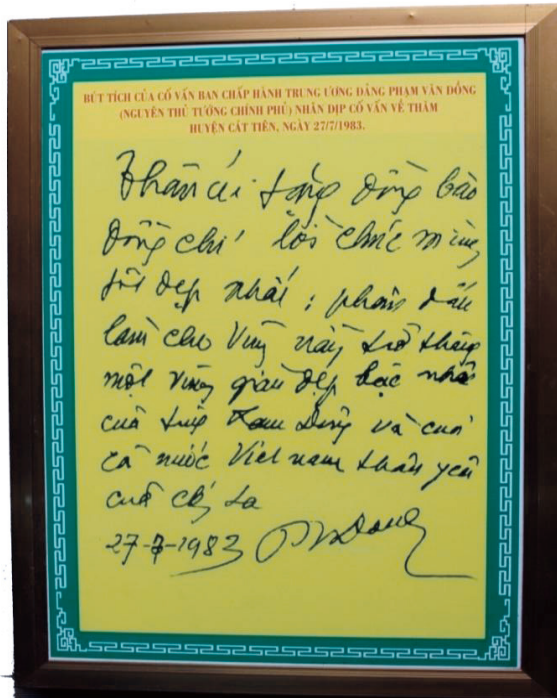 BÚT TÍCH CỦA CỐ VẤN BAN CHẤP HÀNH TRUNG ƯƠNG ĐẢNG PHẠM VĂN ĐỒNG
(NGUYÊN THỦ TƯỚNG CHÍNH PHỦ) NHÂN DỊP CỐ VẤN VỀ THĂM
HUYỆN CÁT TIÊN, NGÀY 27/7/1983.
Thân ái tặng đồng bào
đồng chí lời chúc mừng
tốt đẹp nhất; phấn đấu
làm cho vùng này trở thành
một vùng giàu đẹp bậc nhất
của tỉnh Lâm Đồng và của
cả nước Việt nam thân yêu
của chúng ta
27-7-1983